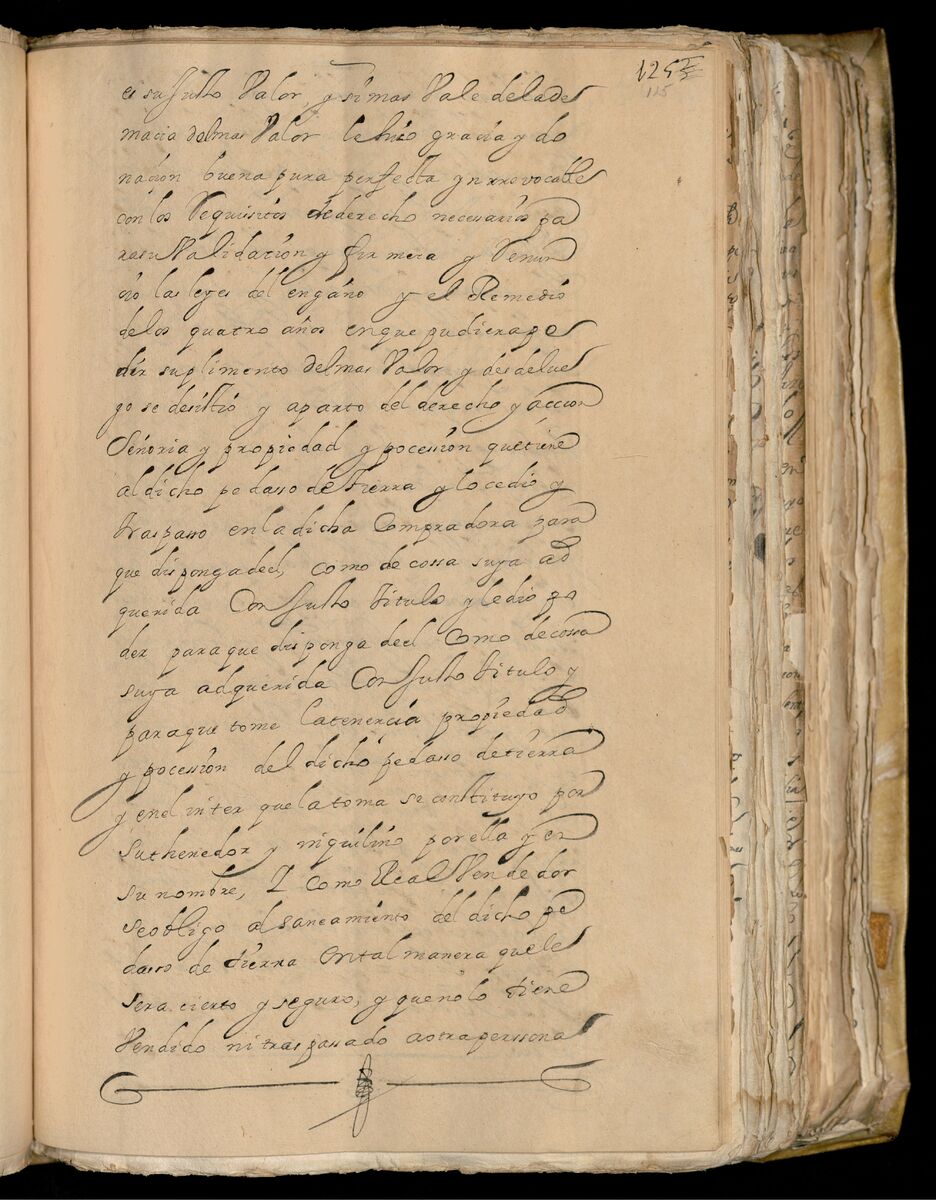 125
115
es su Justo Valor, y si mas Vale de la de
macia del mas Valor le hiso gracia y do
nacion buena pura perfecta yn rrevocable
con los Requisitos de derecho necesarios pa
ra su Validacion y firmeza y Renun
cio las leyes del engaño y el Remedio
de los quatro años en que pudiera pe
dir suplimento del mas Valor y desde lue
go se desistio y aparto del derecho y accion
Señoria y propiedad y pocession que tiene
al dicho pedasso de tierra y lo cedio y
traspasso en la dicha Compradora para
que disponga del, como de cossa suya ad
querida Con Justo titulo y le dio po
der para que disponga del Como de cossa
suya adquerida Con Justo titulo y
para que tome la tenencia propiedad
y pocession del dicho pedasso de tierra
y en el inter que la toma se constituyo por
su thenedor y niquilino por ella y en
su nombre, Y como Real Vendedor
se obligo al saneamiento del dicho pe
dasso de tierra en tal manera que le
sera cierto y seguro, y que no lo tiene
Vendido ni traspassado a otra perssona